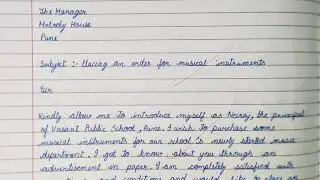 The Manager
Melody House
Pune
Subject :- Placing an order for musical instruments
Sir
Kindly allow me to introduce myself as Neiraj, the principal
of Vasant Public School, Pune. I wish to purchase some
musical instruments for our school's newly started music
department. I got to know about you through an
advertisement in paper. I am completely satisfied with
and conditions and would like to place an